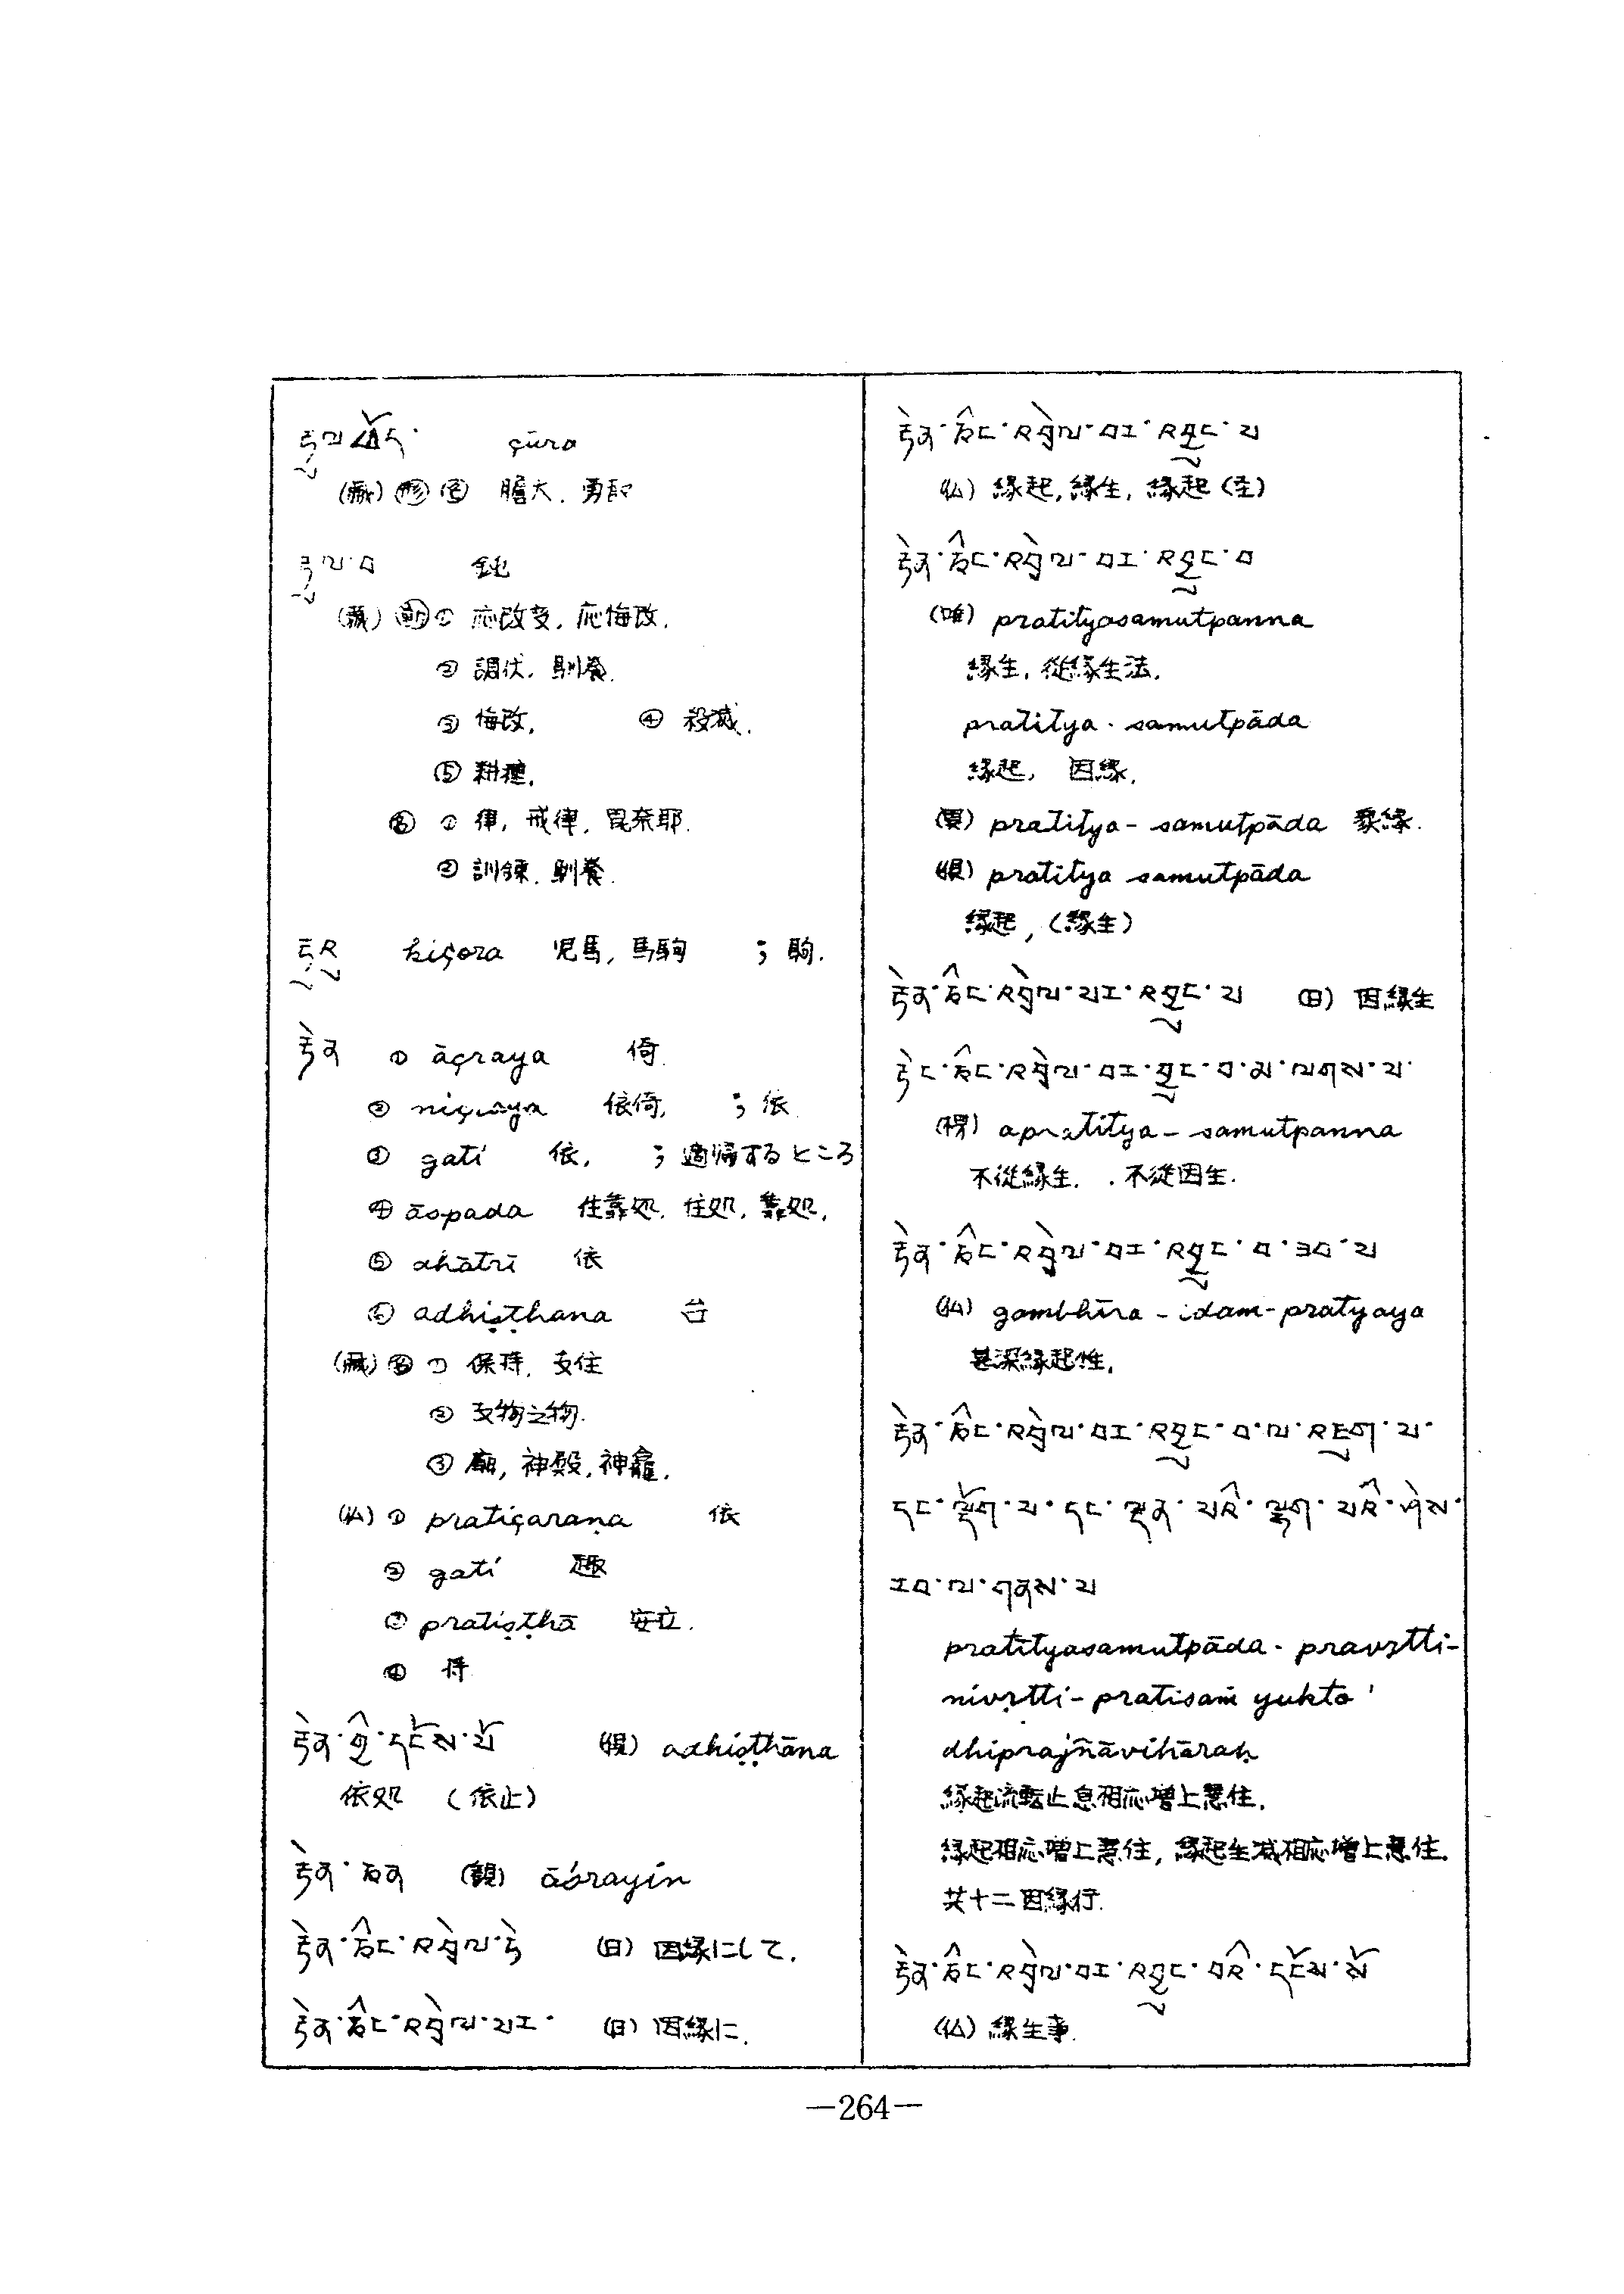 རྟུལ་ཕོད་ çūra
(蔵) 形 名 膽大. 勇敢
རྟུལ་བ 鈍
(蔵) 動 ① 応改変. 応悔改.
② 調伏. 馴養.
③ 悔改. ④ 殺滅.
⑤ 耕種.
名 ① 律, 戒律, 毘奈耶.
② 訓練. 馴養.
kiçora 児馬, 馬駒 ; 駒.
རྟེན ① āçraya 倚.
② niçraya 依倚, ; 依
③ gati 依, ; 適帰するところ
④ āspada 住靠処. 住処, 靠処,
⑤ dhātrī 依
⑥ adhiṣṭhana 台
(蔵) 名 ① 保持. 支住
② 支物之物.
③ 廟, 神殿, 神龕.
(仏) ① pratiçaraṇa 依
② gati 趣
③ pratiṣṭhā 安立.
④ 持
རྟེན་གྱི་དངོས་པོ (倶) adhiṣṭhāna
依処 (依止)
རྟེན་ཅན (観) āśrayin
རྟེན་ཅིང་འབྲེལ་ཏེ (日) 因縁にして.
རྟེན་ཅིང་འབྲེལ་པར་ (日) 因縁に.
རྟེན་ཅིང་འབྲེལ་བར་འབྱུང་པ
(仏) 縁起, 縁生, 縁起(圣)
རྟེན་ཅིང་འབྲེལ་བར་འབྱུང་བ
(唯) pratityasamutpanna
縁生, 従縁生法.
pratitya・samutpāda
縁起, 因縁.
pratitya-samutpāda
(倶) pratitya samutpāda
縁起, (縁生)
རྟེན་ཅིང་འབྲེལ་པར་འབྱུང་པ (日) 因縁生
རྟེང་ཅིང་འབྲེལ་བར་བྱུང་བ་མ་ལགས་པ་
(楞) apratitya-samutpanna
不従縁生. . 不従因生.
རྟེན་ཅིང་འབྲེལ་བར་འབྱུང་བ་ཟབ་པ
(仏) gambhīra-idam-pratyaya
甚深縁起性.
རྟེན་ཅིང་འབྲེལ་བར་འབྱུང་བ་ལ་འཇུག་པ་
དང་ལྡོག་པ་དང་ལྡན་པའི་ལྷག་པའི་ཤེས་
རབ་ལ་གནས་པ
pratītyasamutpāda-pravṛtti-
nivṛtti-pratisaṁ yukto '
dhiprajñāvihāraḥ
縁起流転止息相応増上慧住.
縁起相応増上慧住, 縁起生滅相応増上慧住.
共十二因縁行.
རྟེན་ཅིང་འབྲེལ་བར་འབྱུང་བའི་དངོས་པོ
(仏) 縁生事.
—264—